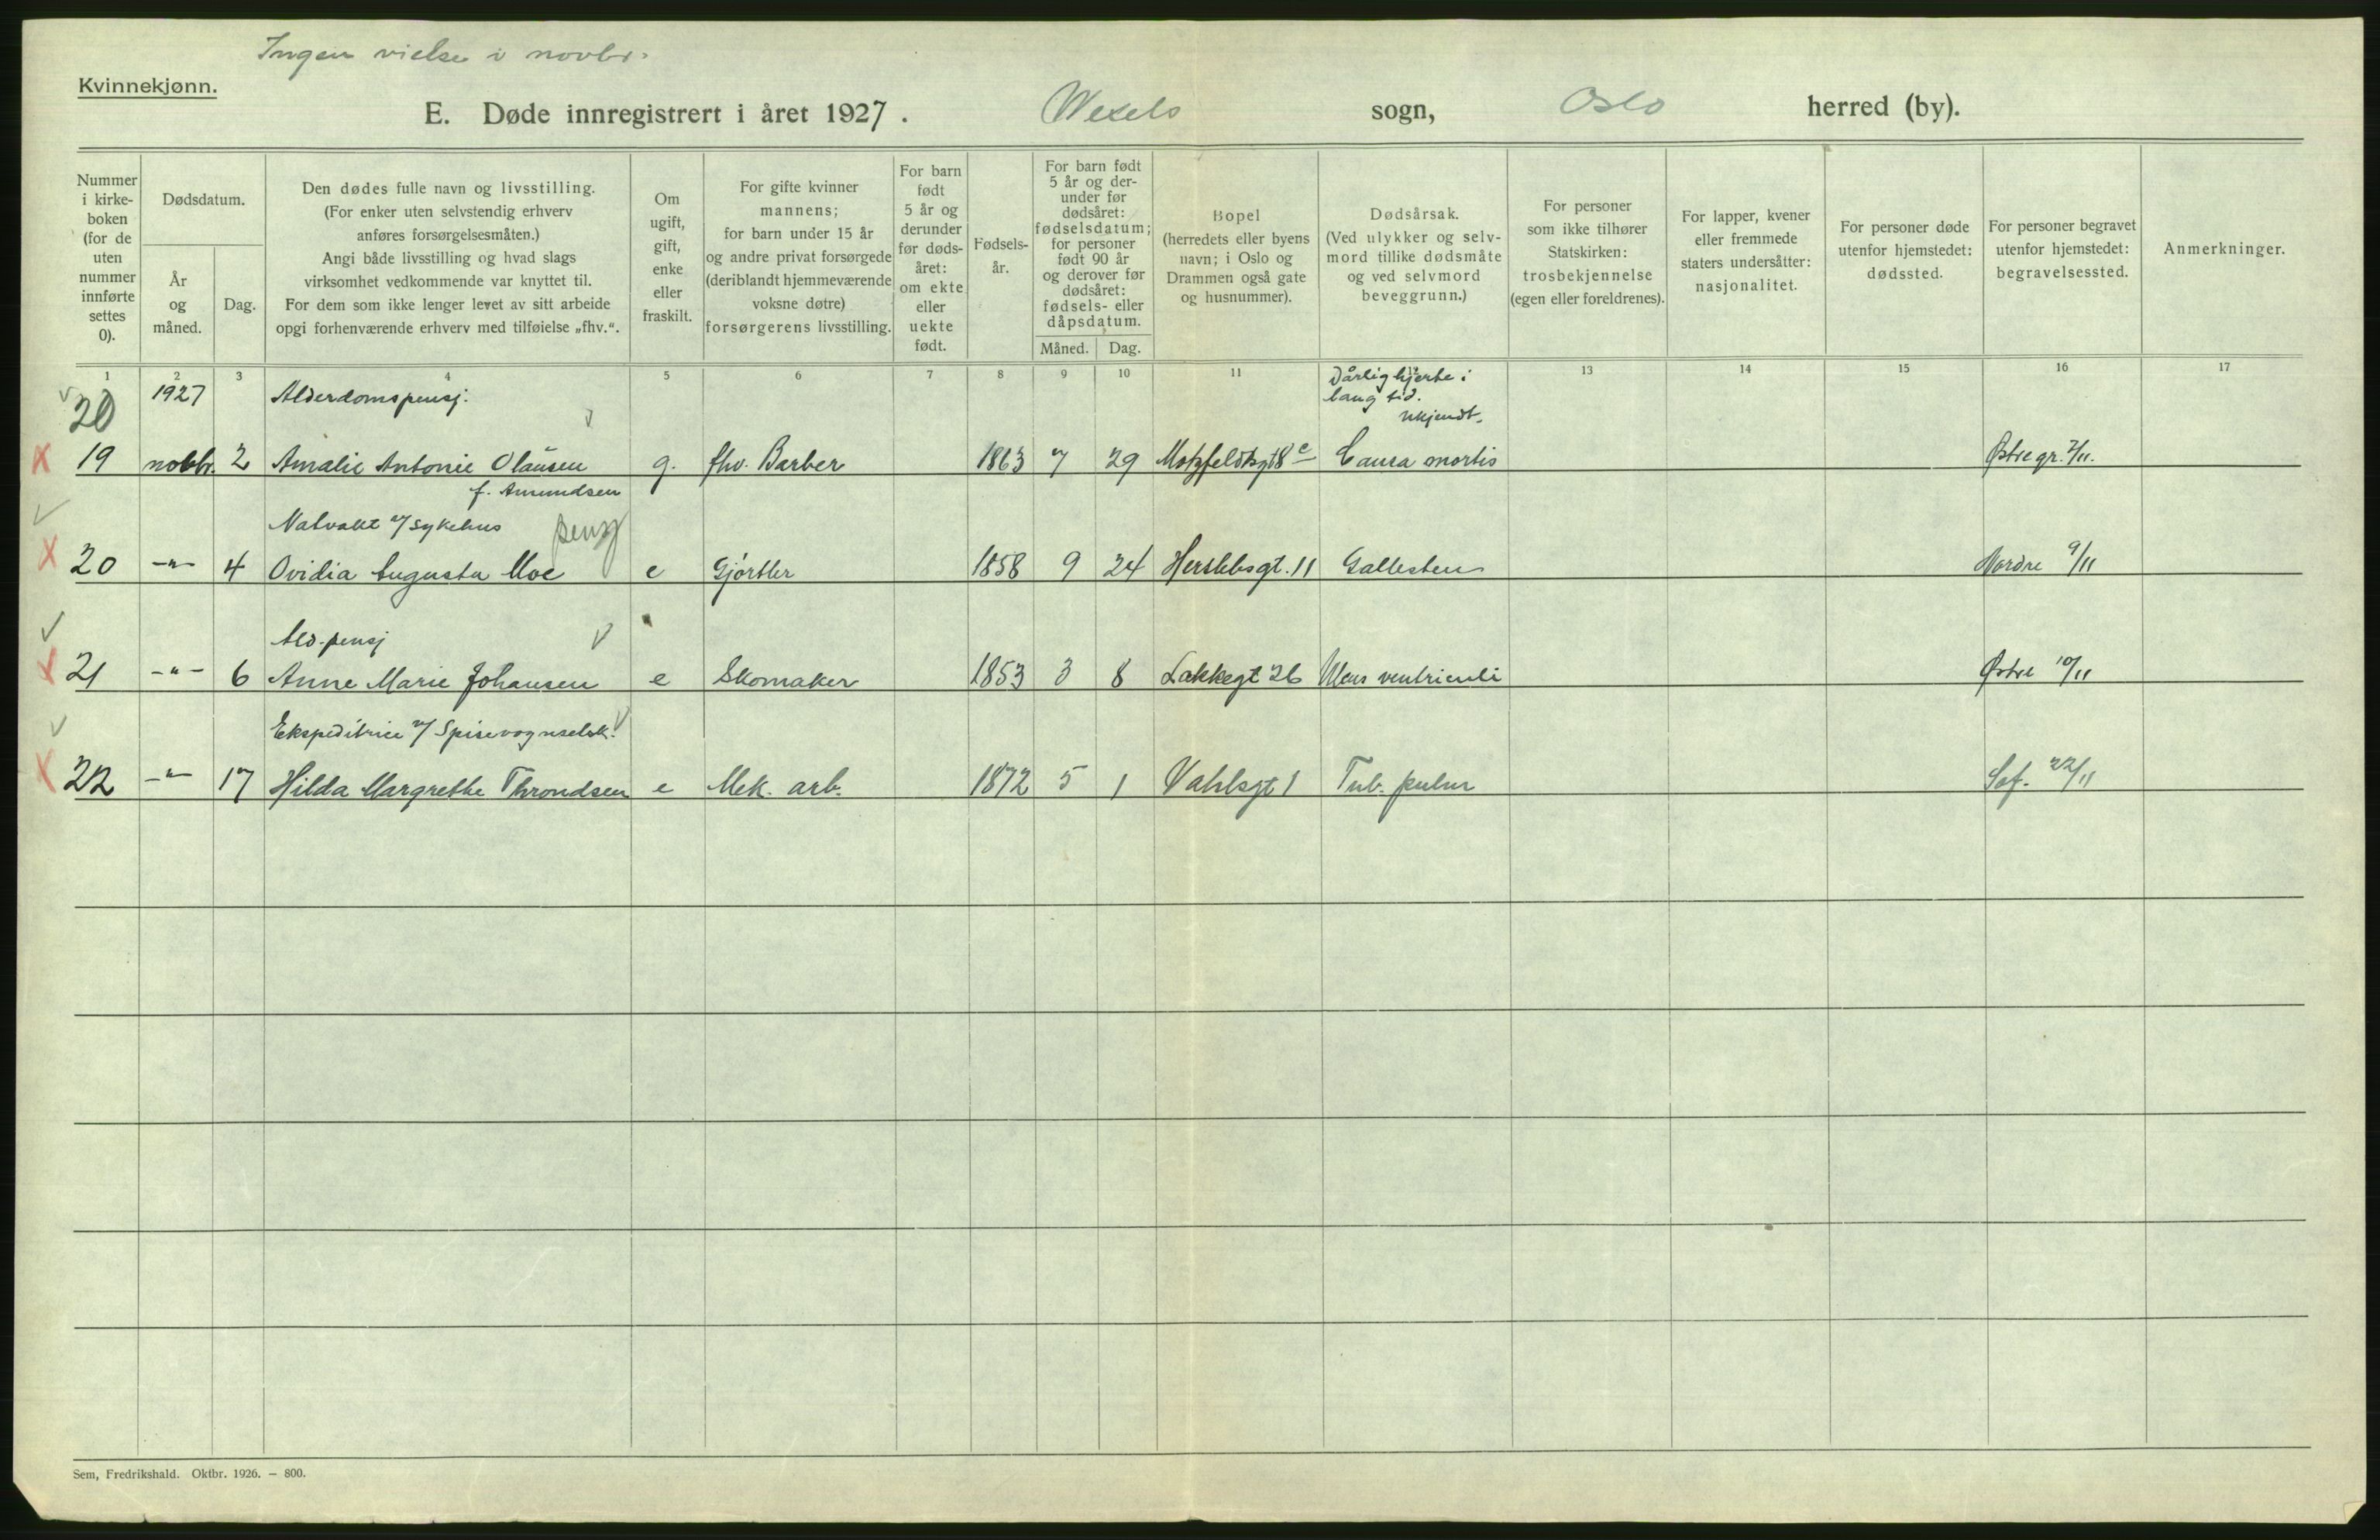 Ingen vielse i novbr.
Kvinnekjønn.
E. Døde innregistrert i året 1927. Wexels sogn, Oslo herred (by).
Nummer i kirke-boken (for de uten nummer innførte settes 0).
Dødsdatum.
År og måned.
Dag.
Den dødes fulle navn og livsstilling.
(For enker uten selvstendig erhverv
anføres forsørgelsesmåten.)
Angi både livsstilling og hvad slags
virksomhet vedkommende var knyttet til.
For dem som ikke lenger levet av sitt arbeide
opgi forhenværende erhverv med tilføielse „fhv.“.
Om ugift, gift, enke eller fraskilt.
For gifte kvinner
mannens;
for barn under 15 år
og andre privat forsørgede
(deriblandt hjemmeværende
voksne døtre)
forsørgerens livsstilling.
For barn født 5 år og derunder før døds-året: om ekte eller uekte født.
Fødsels-år.
For barn født
5 år og der-
under før
dødsåret:
fødselsdatum;
for personer
født 90 år
og derover før
dødsåret:
fødsels- eller
dåpsdatum.
Måned. Dag.
Bopel
(herredets eller byens
navn; i Oslo og
Drammen også gate
og husnummer).
Dødsårsak.
(Ved ulykker og selv-
mord tillike dødsmåte
og ved selvmord
beveggrunn.)
For personer
som ikke tilhører
Statskirken:
trosbekjennelse
(egen eller foreldrenes).
For lapper, kvener
eller fremmede
staters undersåtter:
nasjonalitet.
For personer døde
utenfor hjemstedet:
dødssted.
For personer begravet
utenfor hjemstedet:
begravelsessted.
Anmerkninger.
1 2 3 4 5 6 7 8 9 10 11 13 14 15 16 17
20 1927 Alderdomspensj. Dårlig hjerte i
lang tid.
ukjendt.
19 novbr. 2 Amalie Antonie Olausen g. fhv. Barber 1863 7 29 Motzfeldtsgt 8c Causa mortis Østre gr. 7/11.
f. Amundsen
Natvakt v/ sykehus pensj
20 -"- 4 Ovidia Augusta Moe e Gjørtler 1858 9 24 Herslebsgt. 11 Gallesten Nordre 9/11
Ald. pensj
21 -"- 6 Anne Marie Johansen e Skomaker 1853 3 8 Lakkegt 26 Ulcus ventriculi Østre 10/11
Ekspeditrice v/ Spisevognselsk.
22 -"- 17 Hilda Margrethe Throndsen e Mek. arb. 1872 5 1 Vahlsgt 1 Tub. pulm Sof. 22/11
Sem, Fredrikshald. Oktbr. 1926. — 800.